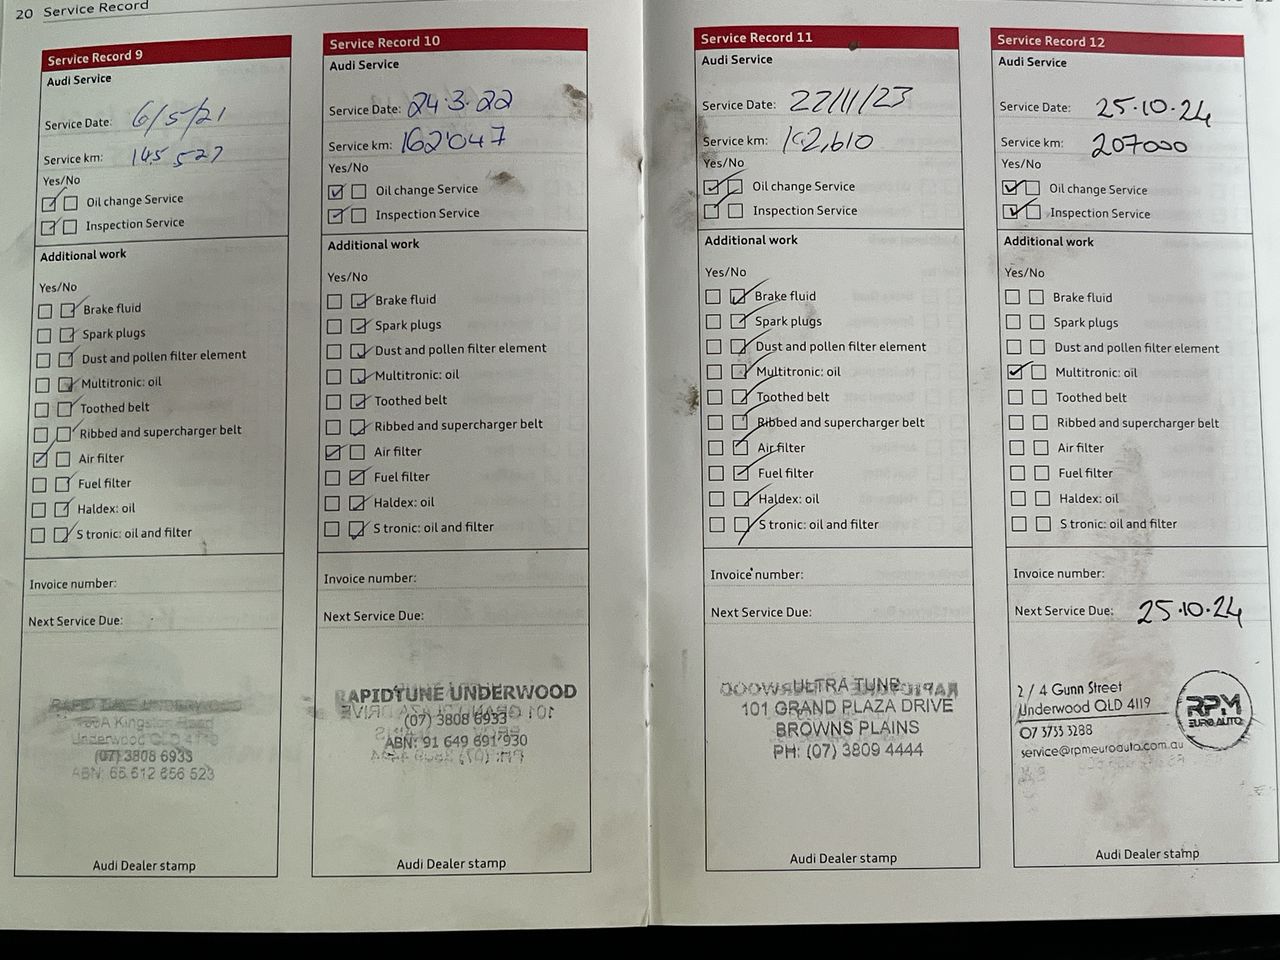 20 Service Record
Service Record 9
Audi Service
Service Date: 6/5/21
Service km: 145 527
Yes/No
Oil change Service
Inspection Service
Additional work
Yes/No
Brake fluid
Spark plugs
Dust and pollen filter element
Multitronic: oil
Toothed belt
Ribbed and supercharger belt
Air filter
Fuel filter
Haldex: oil
S tronic: oil and filter
Invoice number:
Next Service Due:
RAPID TUNE UNDERWOOD
Kingston Road
Underwood QLD 4119
(07) 3808 6933
ABN: 65 612 656 523
Audi Dealer stamp
Service Record 10
Audi Service
Service Date: 24.3.22
Service km: 162'047
Yes/No
Oil change Service
Inspection Service
Additional work
Yes/No
Brake fluid
Spark plugs
Dust and pollen filter element
Multitronic: oil
Toothed belt
Ribbed and supercharger belt
Air filter
Fuel filter
Haldex: oil
S tronic: oil and filter
Invoice number:
Next Service Due:
RAPIDTUNE UNDERWOOD
(07) 3808 6933
ABN: 91 649 691 930
Audi Dealer stamp
Service Record 11
Audi Service
Service Date: 22/11/23
Service km:
Yes/No
Oil change Service
Inspection Service
Additional work
Yes/No
Brake fluid
Spark plugs
Dust and pollen filter element
Multitronic: oil
Toothed belt
Ribbed and supercharger belt
Air filter
Fuel filter
Haldex: oil
S tronic: oil and filter
Invoice number:
Next Service Due:
ULTRA TUNE
101 GRAND PLAZA DRIVE
BROWNS PLAINS
PH: (07) 3809 4444
Audi Dealer stamp
Service Record 12
Audi Service
Service Date: 25.10.24
Service km: 207000
Yes/No
Oil change Service
Inspection Service
Additional work
Yes/No
Brake fluid
Spark plugs
Dust and pollen filter element
Multitronic: oil
Toothed belt
Ribbed and supercharger belt
Air filter
Fuel filter
Haldex: oil
S tronic: oil and filter
Invoice number:
Next Service Due: 25.10.24
2 / 4 Gunn Street
Underwood QLD 4119
07 3733 3288
service@rpmeuroauto.com.au
RPM
EURO AUTO
Audi Dealer stamp